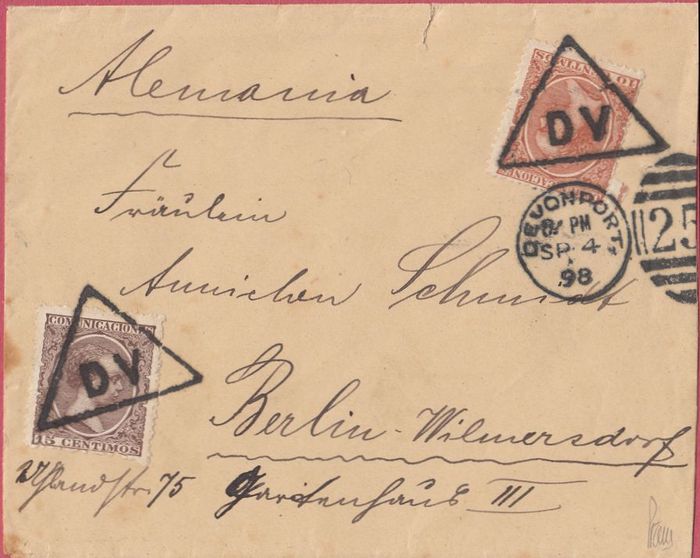 Alemania
10 CENTIMOS
DV
Fräulein
DEVONPORT
PM
SP 4
98
25
Annichen Schmidt
COMUNICACIONES
DV
15 CENTIMOS
Berlin-Wilmersdorf
Uhlandstr. 75 Gartenhaus III